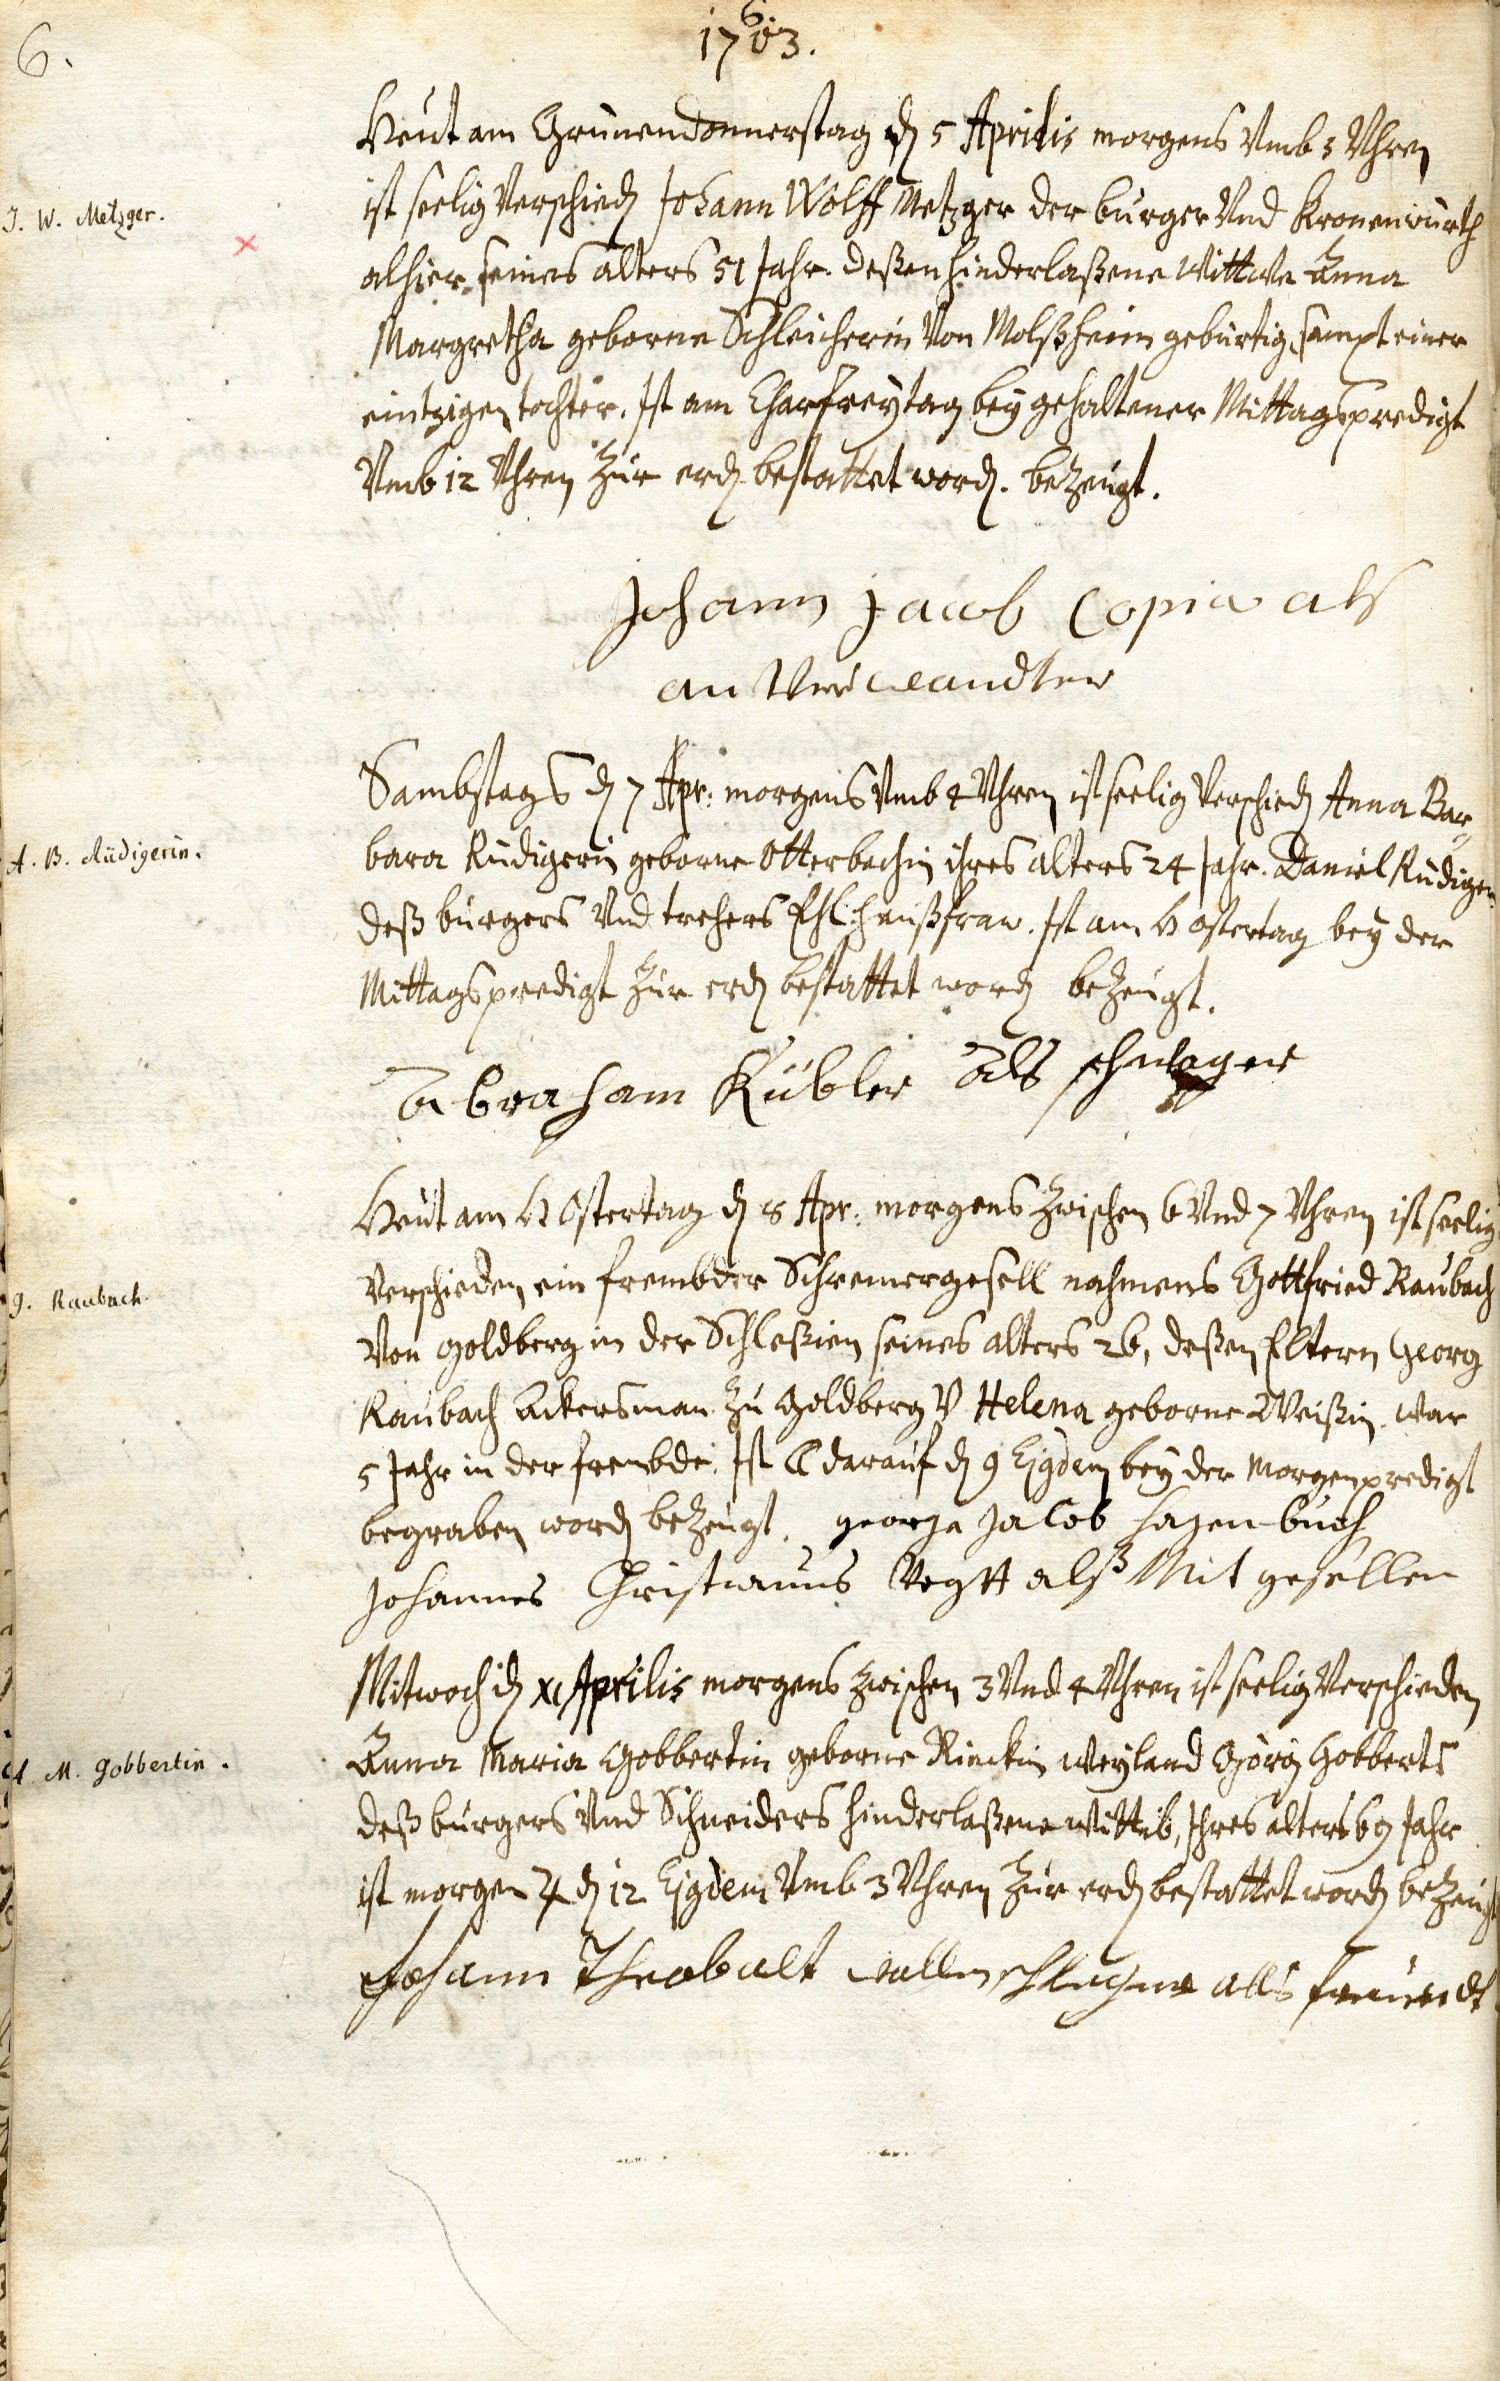 6.
6.
1703.
Heut am Grünendonnerstag dẽ 5 Aprilis morgens Vmb 3 Uhren
J. W. Metzger.
ist seelig Verschiedẽ Johann Wolff Metzger der burger Vnd Kronenwürth
alhier, seines alters 51 Jahr. deßen hinderlaßene Wittwe Anna
Margretha geborne Schleicherin Von Molßheim gebürtig, sampt einer
eintzigen tochter. Ist am Charfreÿtag beÿ gehaltener Mittagspredigt
Vmb 12 Uhren zur erdẽ bestattet wordẽ. bezeugt.
Johann Jacob Copia als
an Verwandter
Sambstags dẽ 7 Apr: morgens Vmb 4 Uhren ist seelig Verschiedẽ Anna Bar-
A. B. Rüdigerin.
bara Rüdigerin geborne Otterbachin ihres alters 24 Jahr. Daniel Rüdiger
deß burgers Vnd trehers Ehl. haußfraw. Ist am H Ostertag beÿ der
Mittagspredigt zur erdẽ bestattet wordẽ bezeugt.
Abraham Kübler als schwager
Heut am H Ostertag dẽ 8 Apr: morgens zwischen 6 Vnd 7 Uhren ist seelig
Verschieden ein frembder Schreinergesell nahmens Gottfried Raubach
G. Raubach.
Von Goldberg in der Schleßien seines alters 26, deßen Eltern Georg
Raubach Ackersman zu Goldberg V Helena geborne Weißin. war
5 Jahr in der frembde. Ist ☾ darauf dẽ 9 Ejgdem beÿ der Morgenpredigt
begraben wordẽ bezeugt. georg Jacob Hagenbuch
Johannes Christianus Vogtt alß Mit gesellen
Mitwoch dẽ XI Aprilis morgens zwischen 3 Vnd 4 Uhren ist seelig Verschieden
A. M. Gobbertin.
Anna Maria Gobbertin geborne Rinckin weyland Görg Gobberts
deß burgers Vnd Schneiders hinderlaßene Wittib, Ihres alters 69 Jahr
ist morgen ♃ dẽ 12 Ejgdem Vmb 3 Uhren zur erdẽ bestattet wordẽ bezeugt
Johann Theobalt als freündt